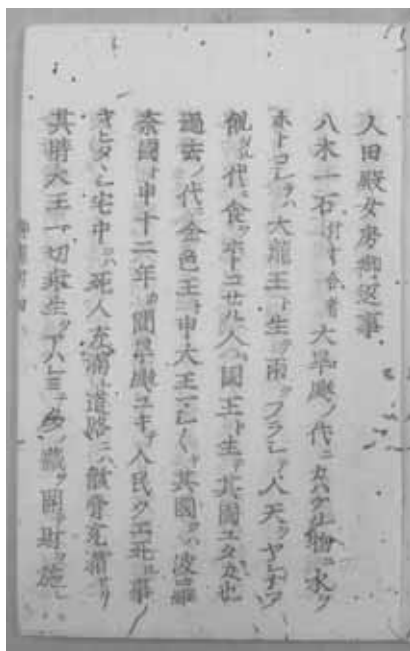 大田殿女房御返事
八木一石付十合者大旱魃ノ代ニカハケル物ニ水ヲ
ホトコシテハ大龍王ト生テ雨ヲフラシテ人天ヲヤシナフ
飢タル代ニ食ヲホトコせル人ハ國王ト生テ其國ユタカ也
過去ノ代ニ金色王ト申大王マシ〱キ其國ヲハ波羅
奈國ト申十二年カ間旱魃ユキテ人民ウエ死ル事
ヲヒタヽシ宅中ニハ死人充滿道路ニハ骸骨充滿せリ
其時大王一切衆生ヲアハレミテ多ノ藏ヲ開テ財ヲ施シ